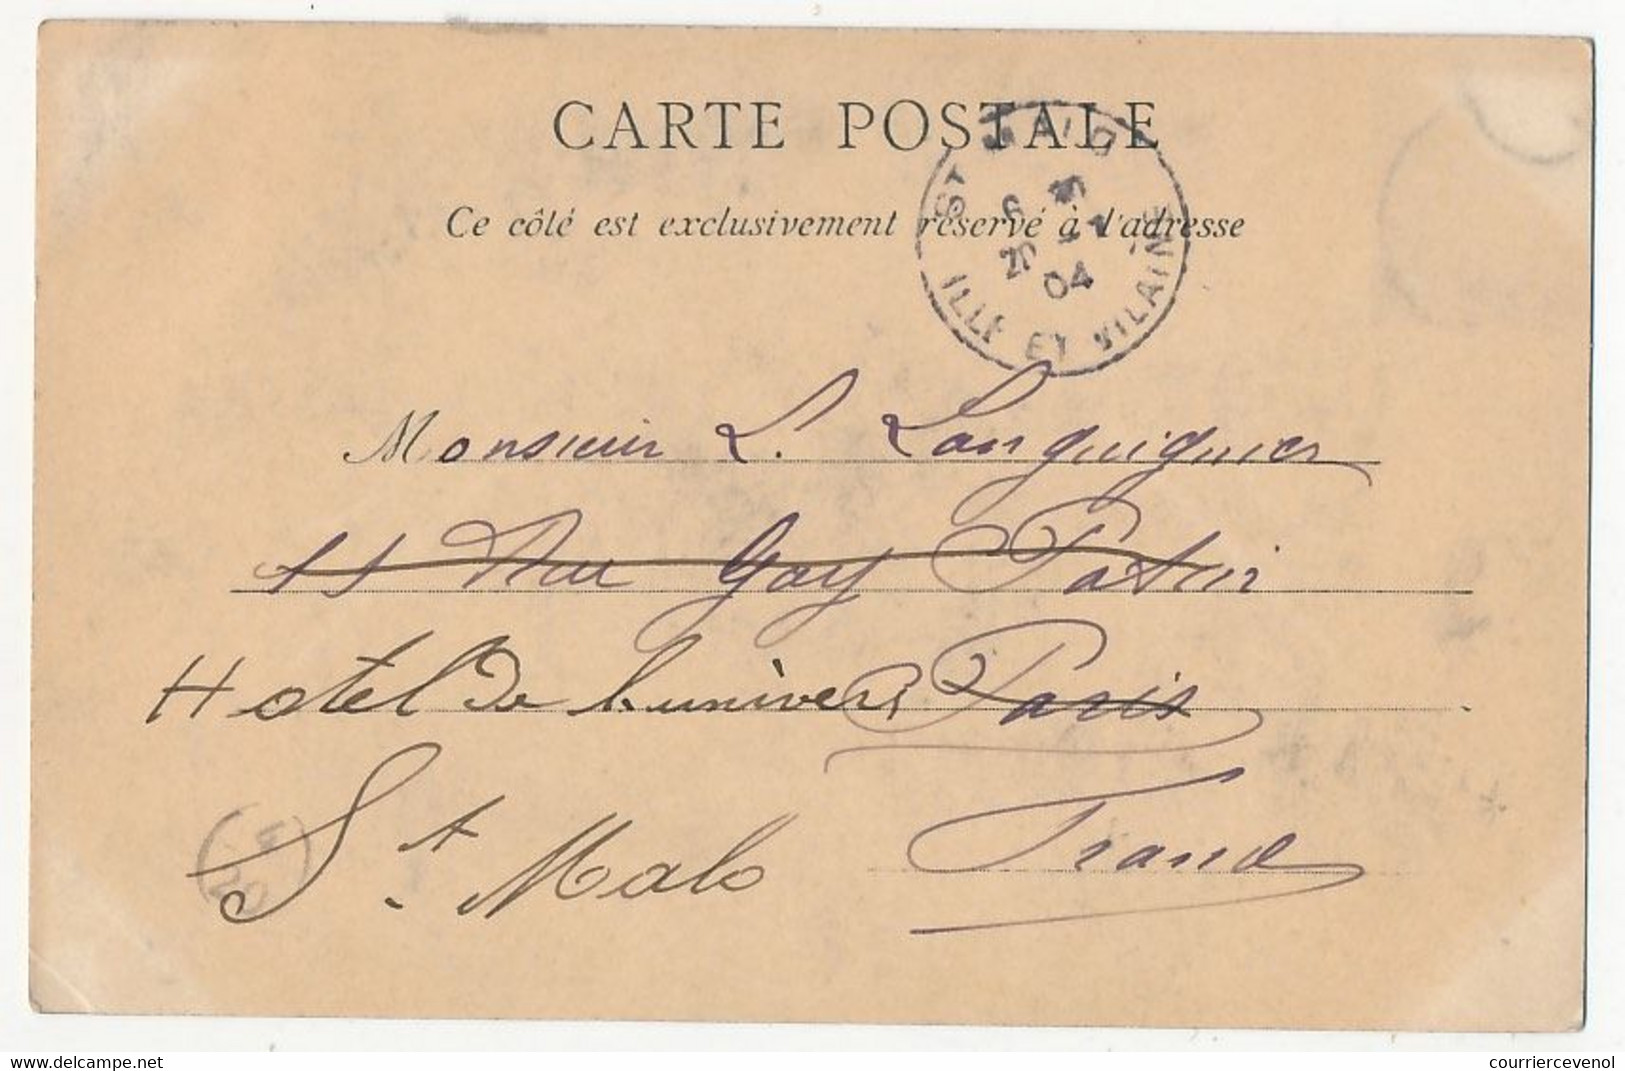 CARTE POSTALE
Ce côté est exclusivement réservé à l'adresse
ST MALO
6
20 04
ILLE ET VILAINE
Monsieur L. Languignier
11 Rue Guy Patin
Hotel de l'univers Paris
St. Malo France
courriercevenol